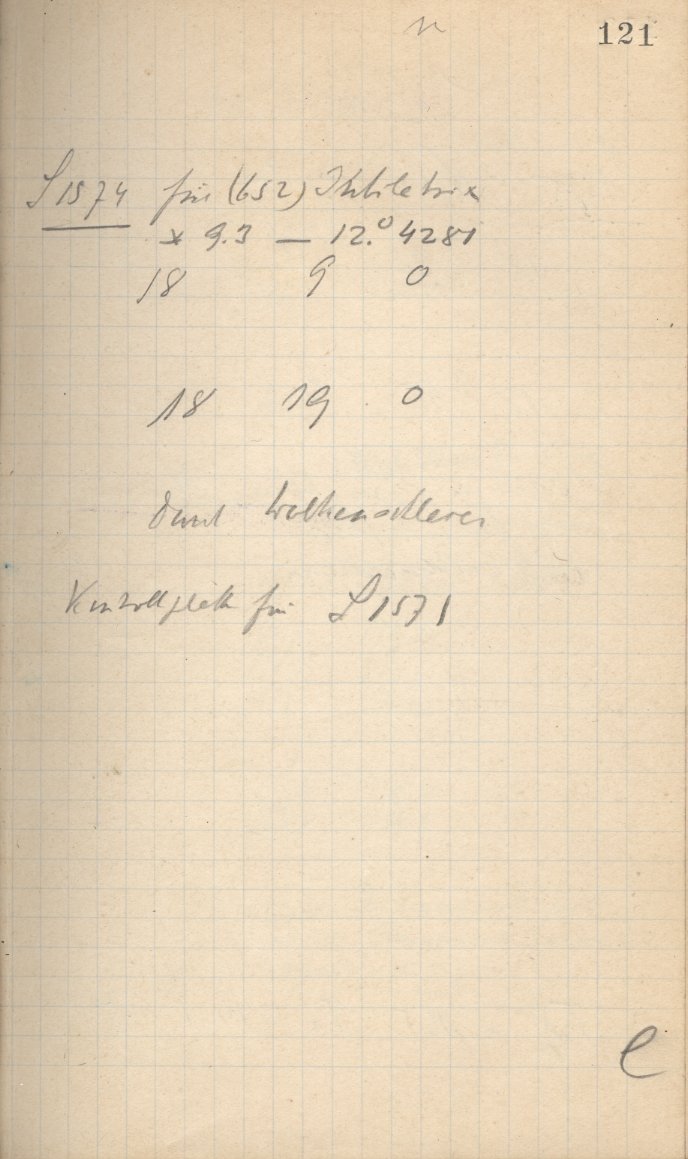 n 121
S 1574 für (652) Jubilatrix
* 9.3 — 12.° 4281
18 9 0
18 19 0
Durch Wolkenschleier
Kontrollplatte für S 1571
e